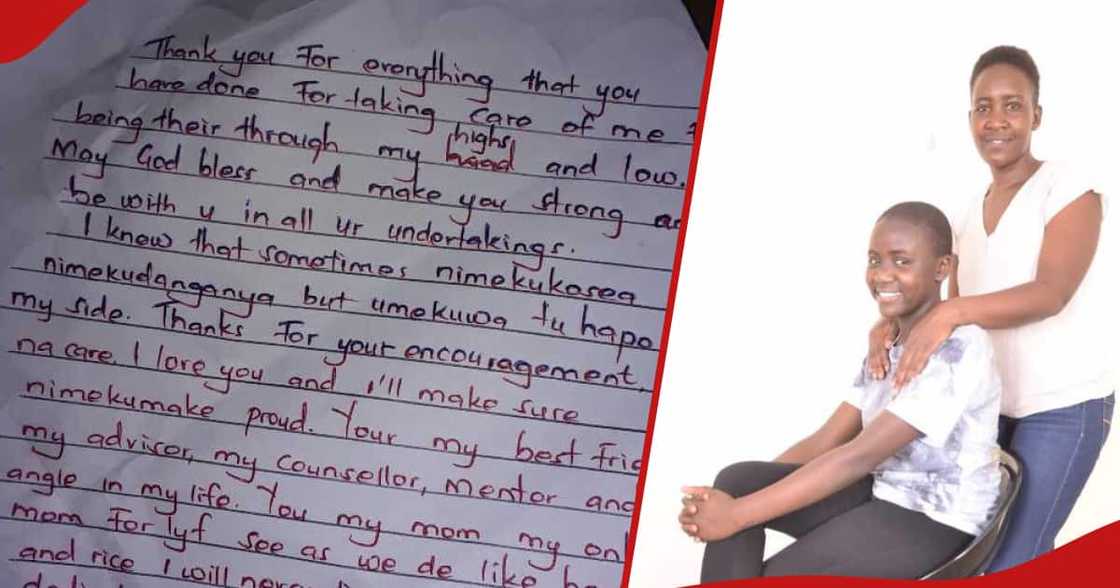 Thank you For everything that you
have done For taking care of me &
being their through my highs haad and low.
May God bless and make you strong
be with u in all ur undertakings.
I know that sometimes nimekukosea
nimekudanganya but umekuwa tu hapo
my side. Thanks For your encouragement,
na care I love you and I'll make sure
nimekumake proud. Your my best
my advisor, my counsellor, mentor and
angle in my life. You my mom my
mom For lyf see as we de like
and rice I will